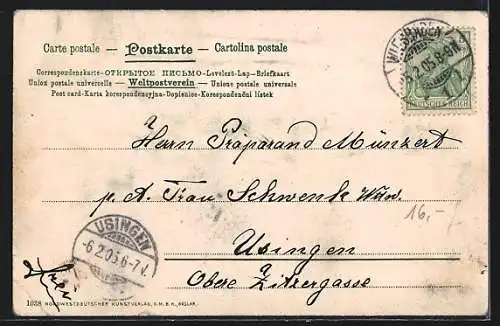 Carte postale — Postkarte — Cartolina postale
Correspondenzkarte-ОТКРЫТОЕ ПИСЬМО-Levelezö-Lap-Briefkaart
Union postale universelle — Weltpostverein — Unione postale universale
Post card-Karta korespondencyjna-Dopisnice-Korespondenční lístek
WIESBADEN
6.2.05.8-9V.
DEUTSCHES REICH
Herrn Präparand Münzert
p. A. Frau Schwenk Wwe.
16.-
USINGEN
-6.2.05.6-7N.
Usingen
Obere Zitzergasse
1038 NORDWESTDEUTSCHER KUNSTVERLAG, G.M.B.H., GOSLAR.